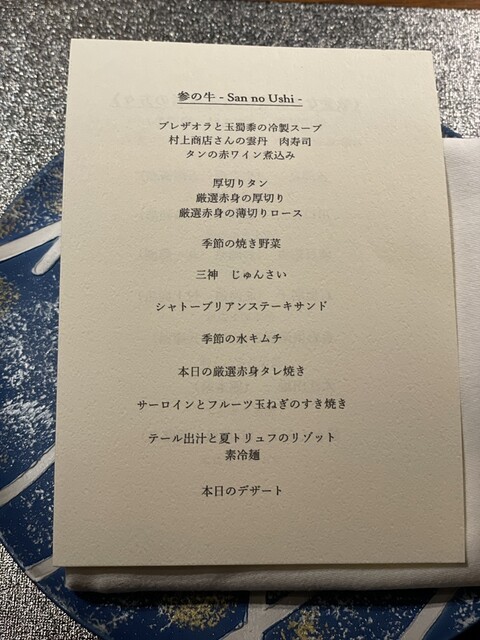 参の牛 - San no Ushi -
ブレザオラと玉蜀黍の冷製スープ
村上商店さんの雲丹　肉寿司
タンの赤ワイン煮込み
厚切りタン
厳選赤身の厚切り
厳選赤身の薄切りロース
季節の焼き野菜
三神　じゅんさい
シャトーブリアンステーキサンド
季節の水キムチ
本日の厳選赤身タレ焼き
サーロインとフルーツ玉ねぎのすき焼き
テール出汁と夏トリュフのリゾット
素冷麺
本日のデザート